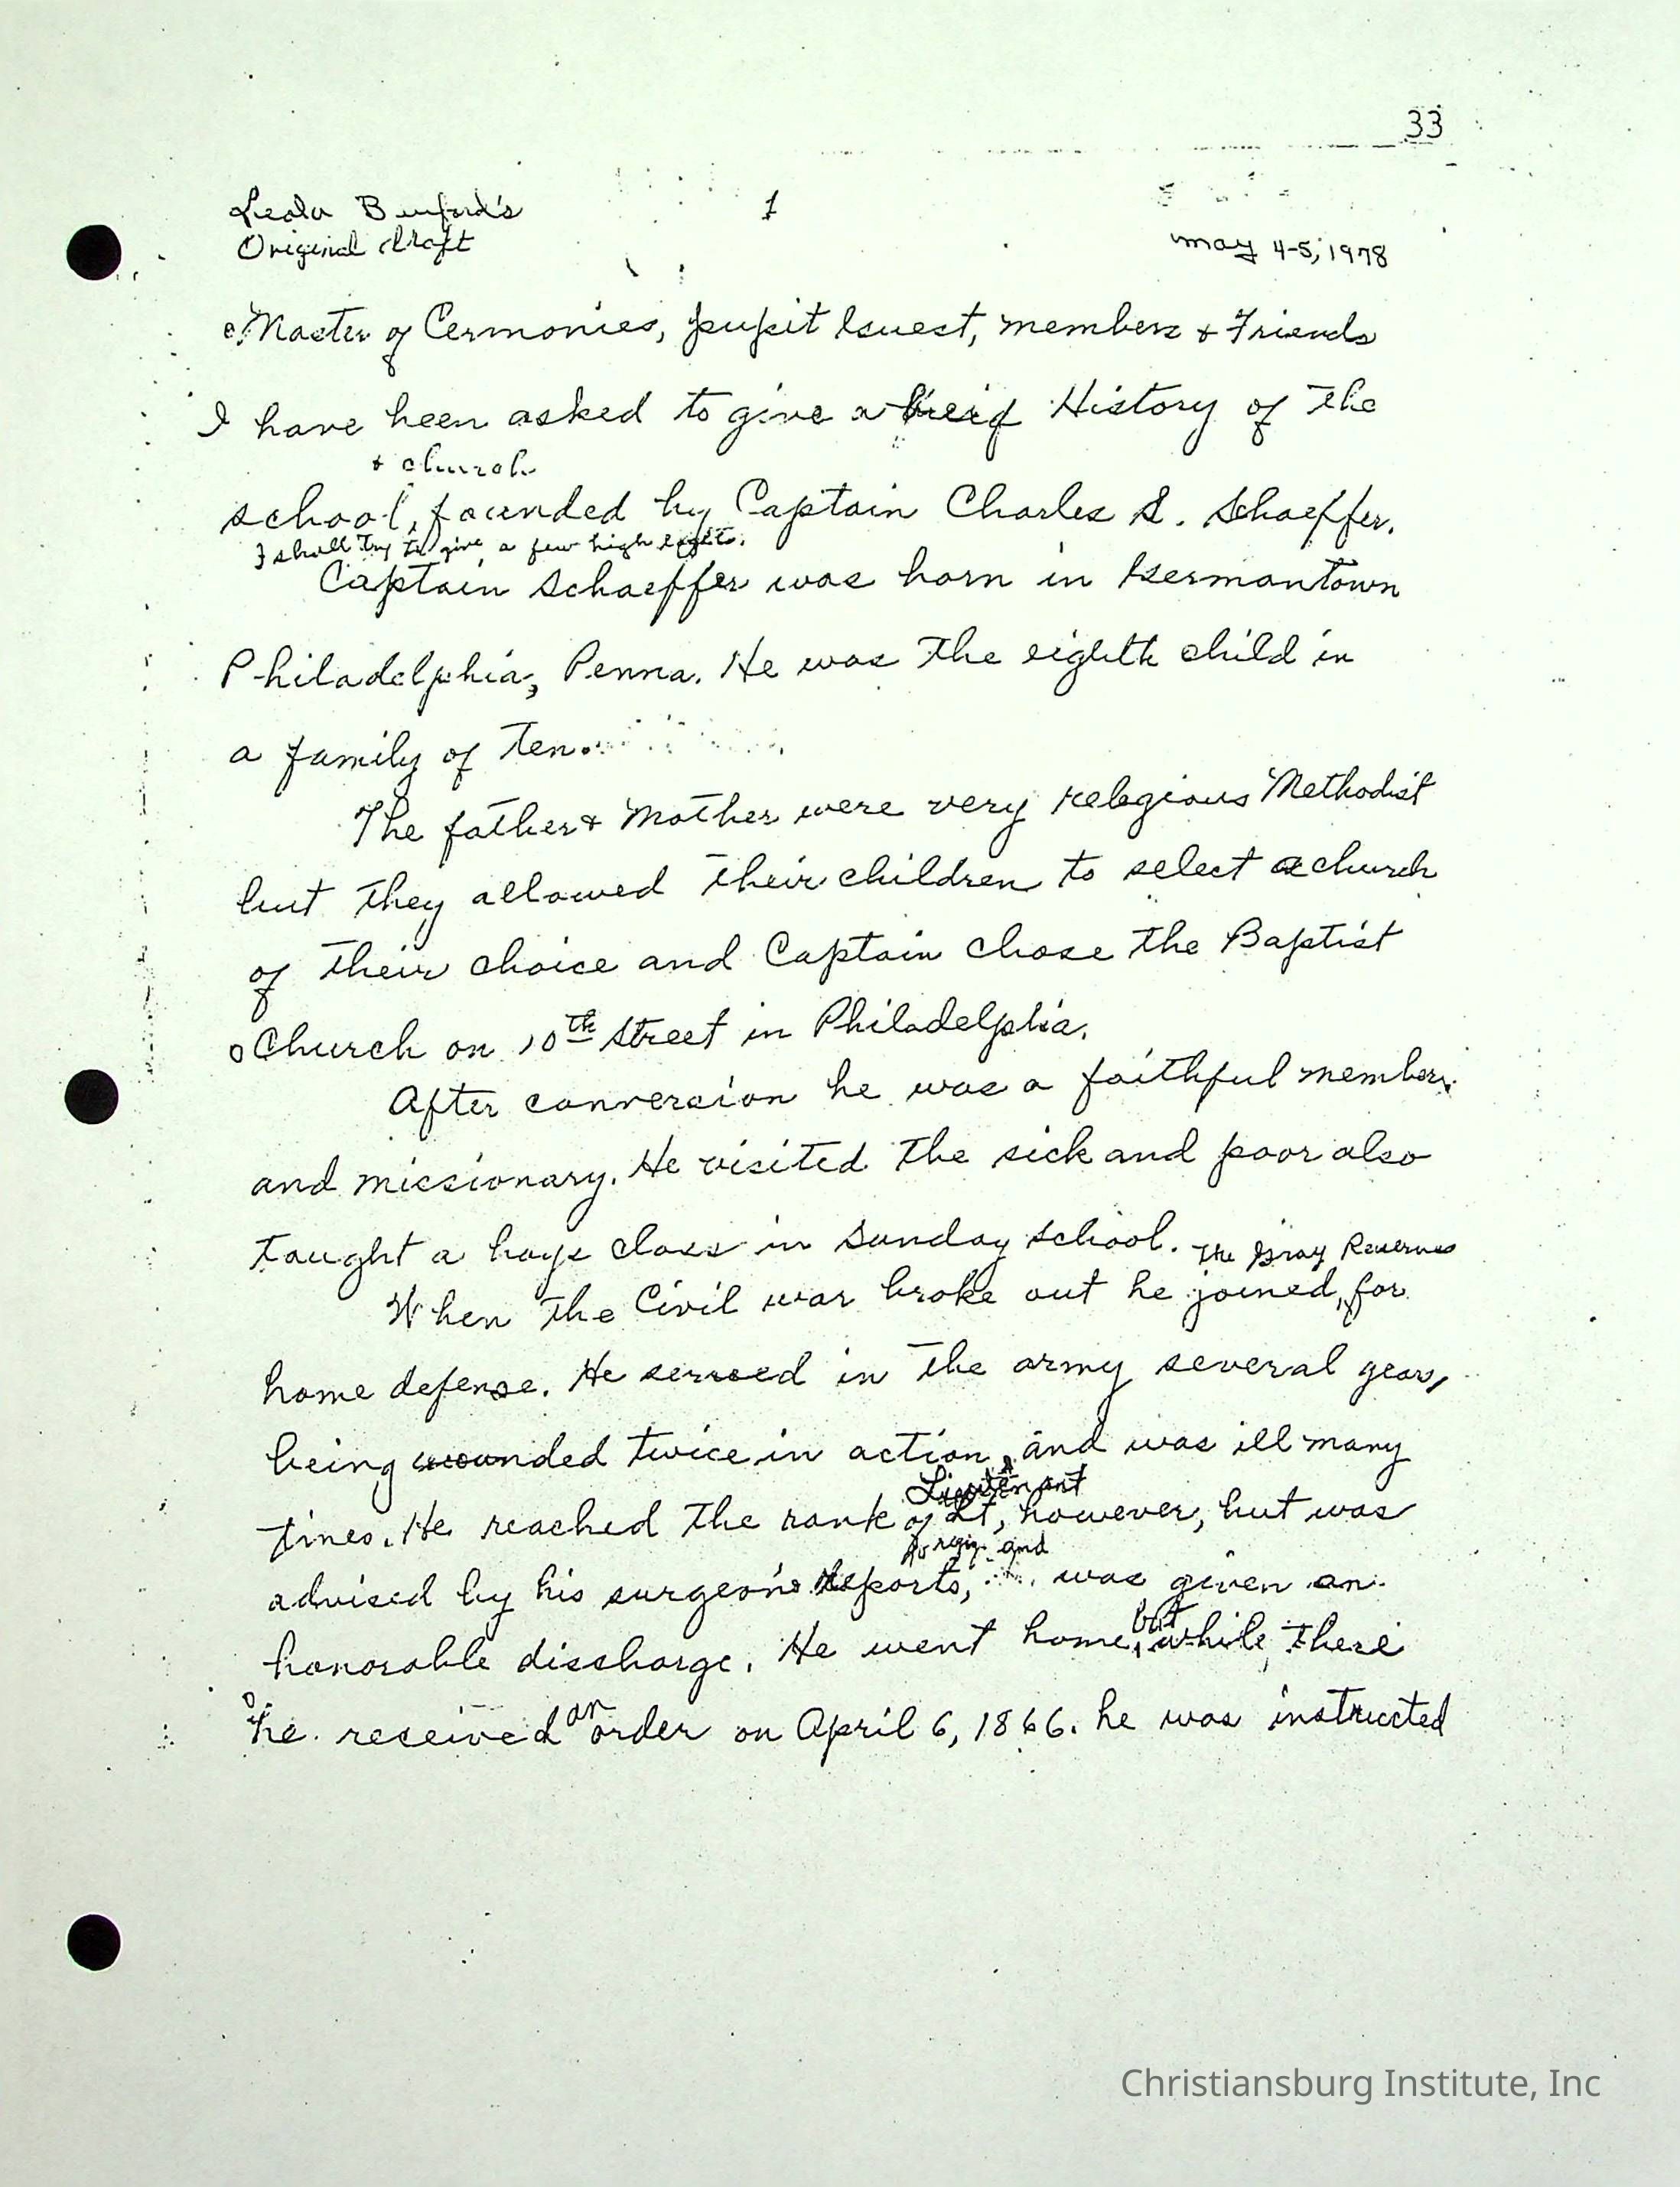 33
Leola Burford's
1
Original draft
May 4-5, 1978
Master of Cermonies, pupit Guest, members & Friends
I have been asked to give a breif History of the
& church
school, founded by Captain Charles S. Schaeffer.
I shall try to give a few high lights.
Captain Schaeffer was born in Germantown
Philadelphia, Penna. He was the eighth child in
a family of ten.
The father & Mother were very relegious Methodist
but they allowed their children to select a church
of their choice and Captain chose the Baptist
Church on 10th Street in Philadelphia.
After conversion he was a faithful member
and missionary. He visited the sick and poor also
taught a boys class in Sunday School.
The Gray Reserves
When the Civil war broke out he joined, for
home defense. He served in the army several years,
being wounded twice in action, and was ill many
Lieutenant
times. He reached the rank of Lt, however, but was
to resign and
advised by his surgeon's reports, was given an
but
honorable discharge. He went home, while there
an
he received order on April 6, 1866. he was instructed
Christiansburg Institute, Inc